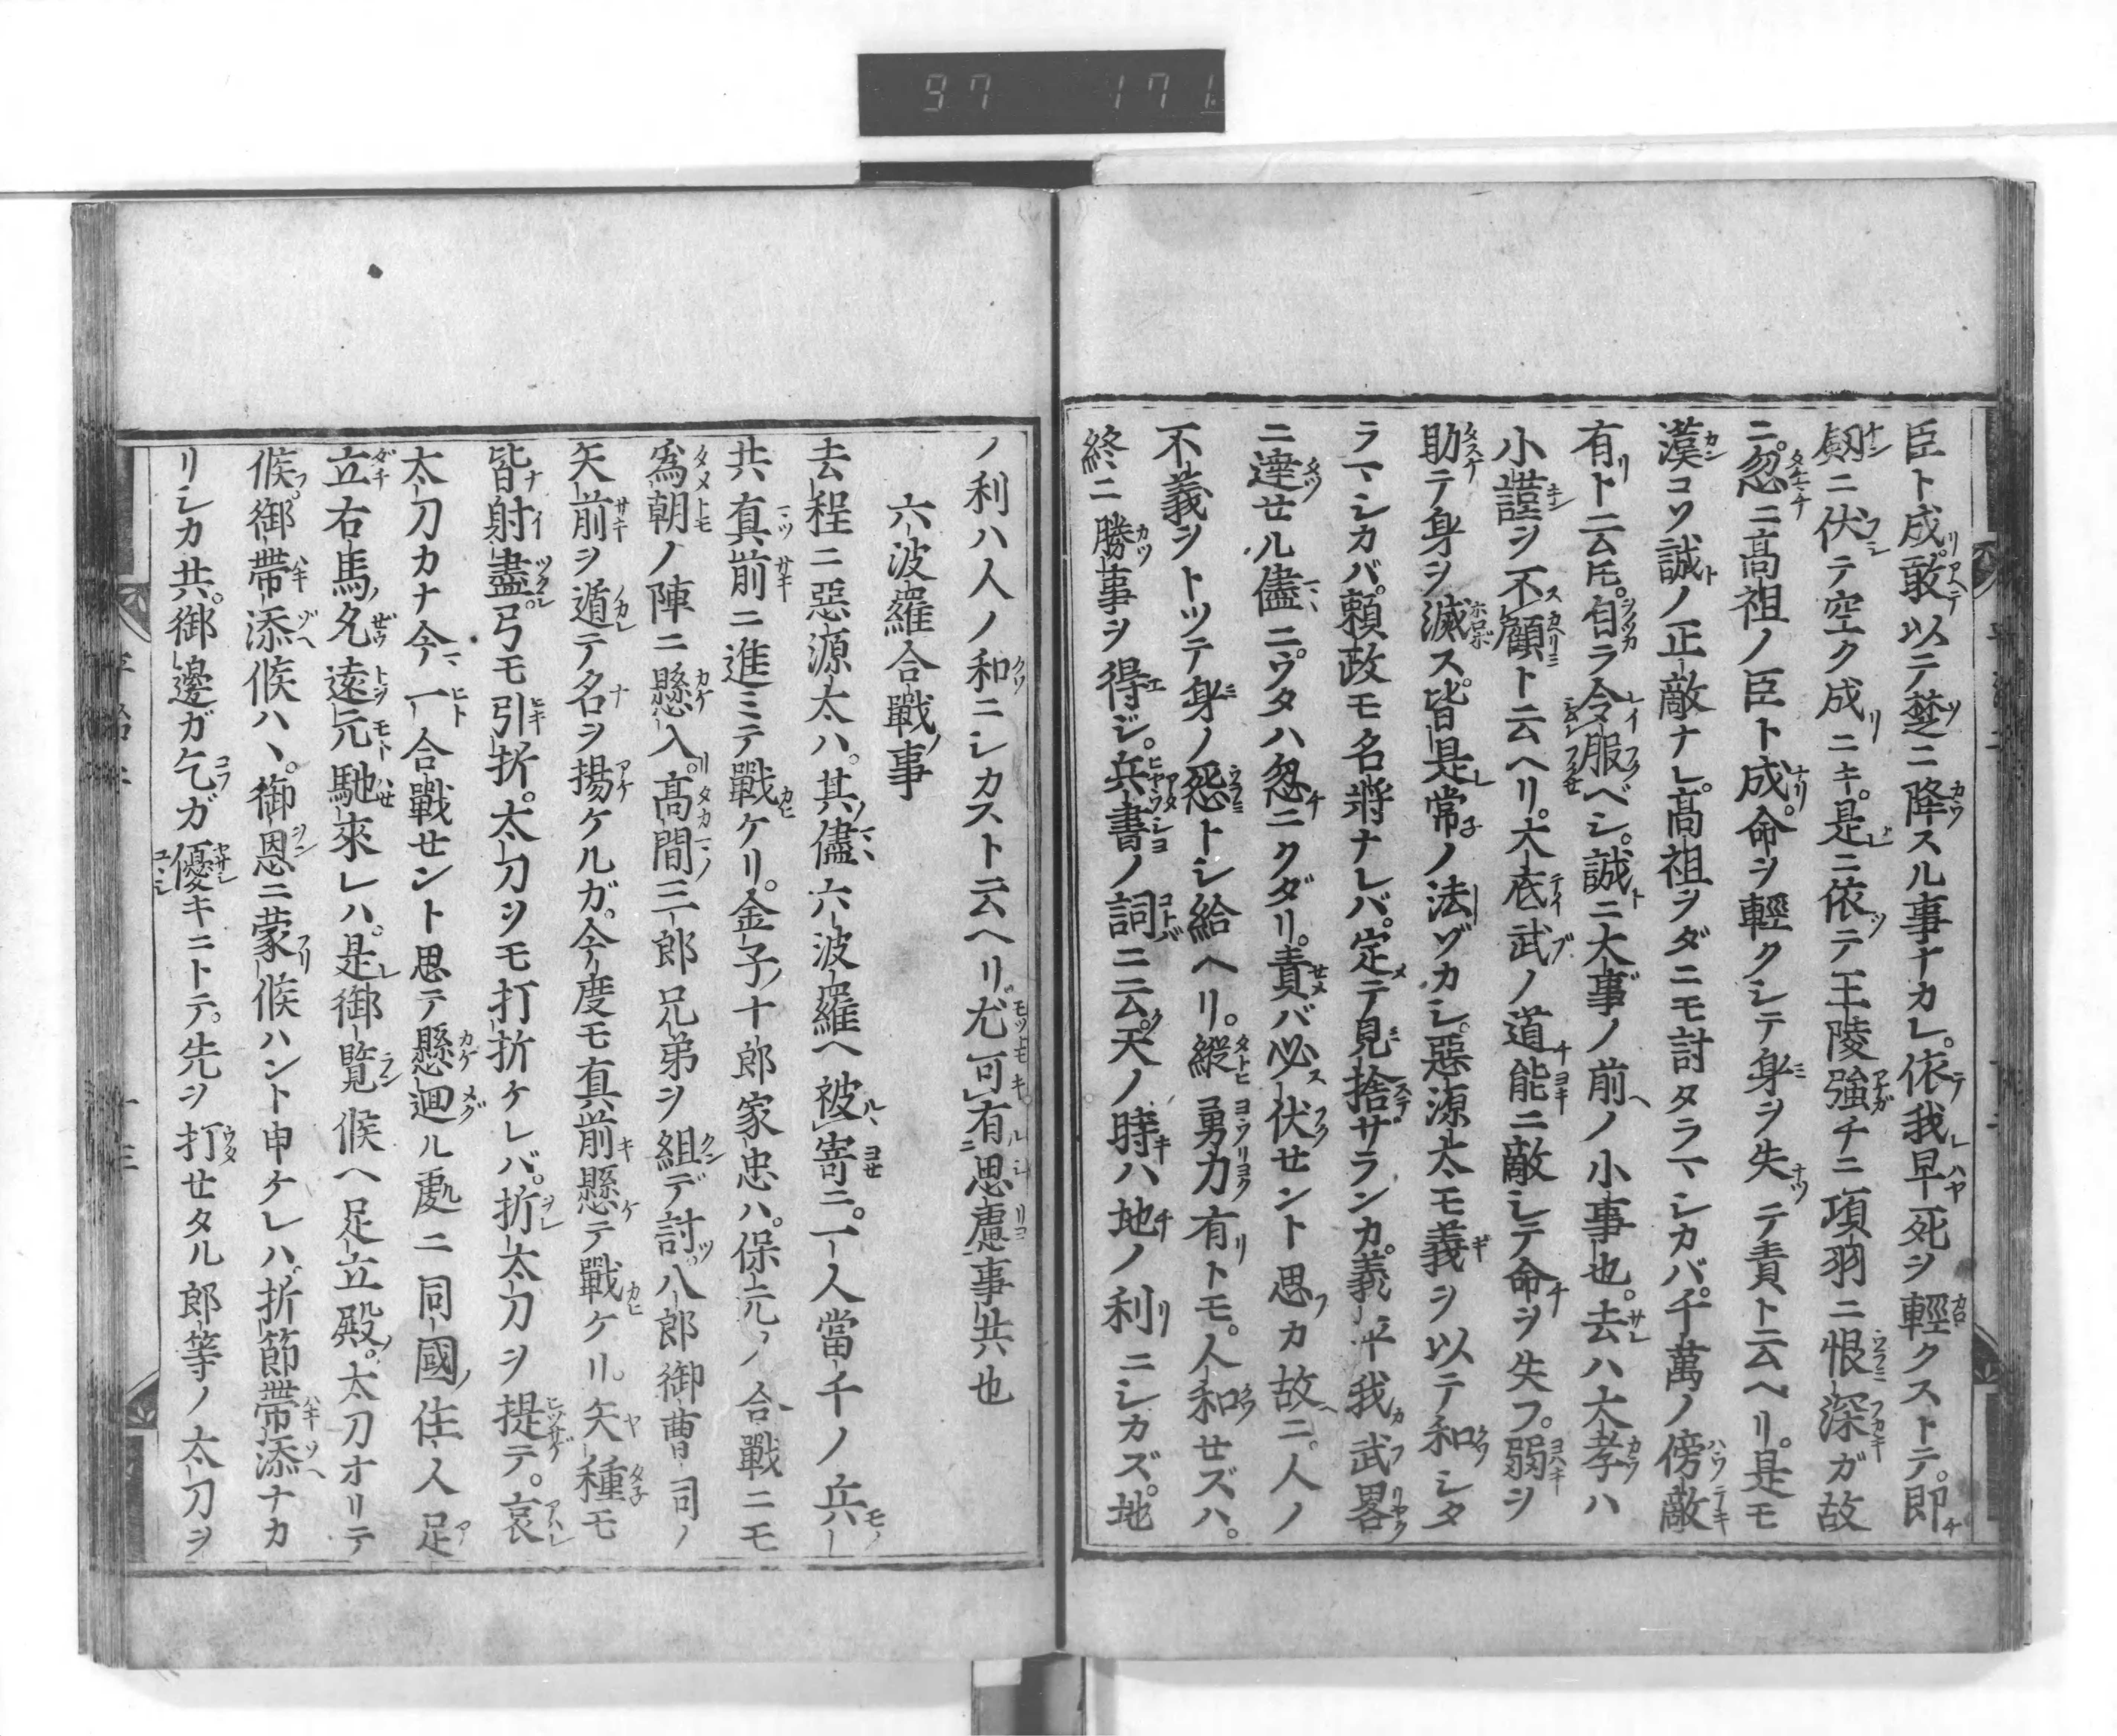 97 171
臣ト成敢以テ楚ニ降スル事ナカレ。依我早死ヲ輕クストテ。即
劔ニ伏テ空ク成ニキ。是ニ依テ王陵強チニ項羽ニ恨深ガ故
ニ。忽ニ髙祖ノ臣ト成。命ヲ輕クシテ身ヲ失テ責ト云ヘリ。是モ
漢コソ誠ノ正敵ナレ。髙祖ヲダニモ討タラマシカバ。千萬ノ傍敵
有ト云ヘ𪜈。自ラ令服ベシ。誠ニ大事ノ前ノ小事也。去ハ大孝ハ
小謹ヲ不顧ト云ヘリ。大底武ノ道能ニ敵シテ命ヲ失フ。弱ヲ
助テ身ヲ滅ス。皆是常ノ法ゾカシ。惡源太モ義ヲ以テ和シタ
ラマシカバ。頼政モ名將ナレバ。定テ見捨サランカ。義平我武畧
ニ達セル儘ニ。ウタハ忽ニクダリ。責バ必伏セント思カ故ニ。人ノ
不義ヲトツテ身ノ怨トシ給ヘリ。縱勇力有トモ。人和セズハ。
終ニ勝事ヲ得ジ。兵書ノ詞ニ云。天ノ時ハ地ノ利ニシカズ。地
ノ利ハ人ノ和ニシカスト云ヘリ。尤可有思慮事共也
六波羅合戰事
去程ニ惡源太ハ。其儘六波羅ヘ被寄ニ。一人當千ノ兵
共真前ニ進ミテ戰ケリ。金子十郎家忠ハ。保元ノ合戰ニモ
爲朝ノ陣ニ懸入。髙間三郎兄弟ヲ組デ討。八郎御曹司ノ
矢前ヲ遁テ名ヲ揚ケルガ。今度モ真前懸テ戰ケリ。矢種モ
皆射盡。弓モ引折。太刀ヲモ打折ケレバ。折太刀ヲ提テ。哀
太刀カナ今一合戰セント思テ懸廻ル處ニ同國住人足
立右馬允遠元馳來レハ。是御覧候ヘ足立殿。太刀オリテ
候。御帶添候ハヽ。御恩ニ蒙候ハント申ケレハ折節帶添ナカ
リシカ共。御邊ガ乞ガ優キニトテ。先ヲ打セタル郎等ノ太刀ヲ